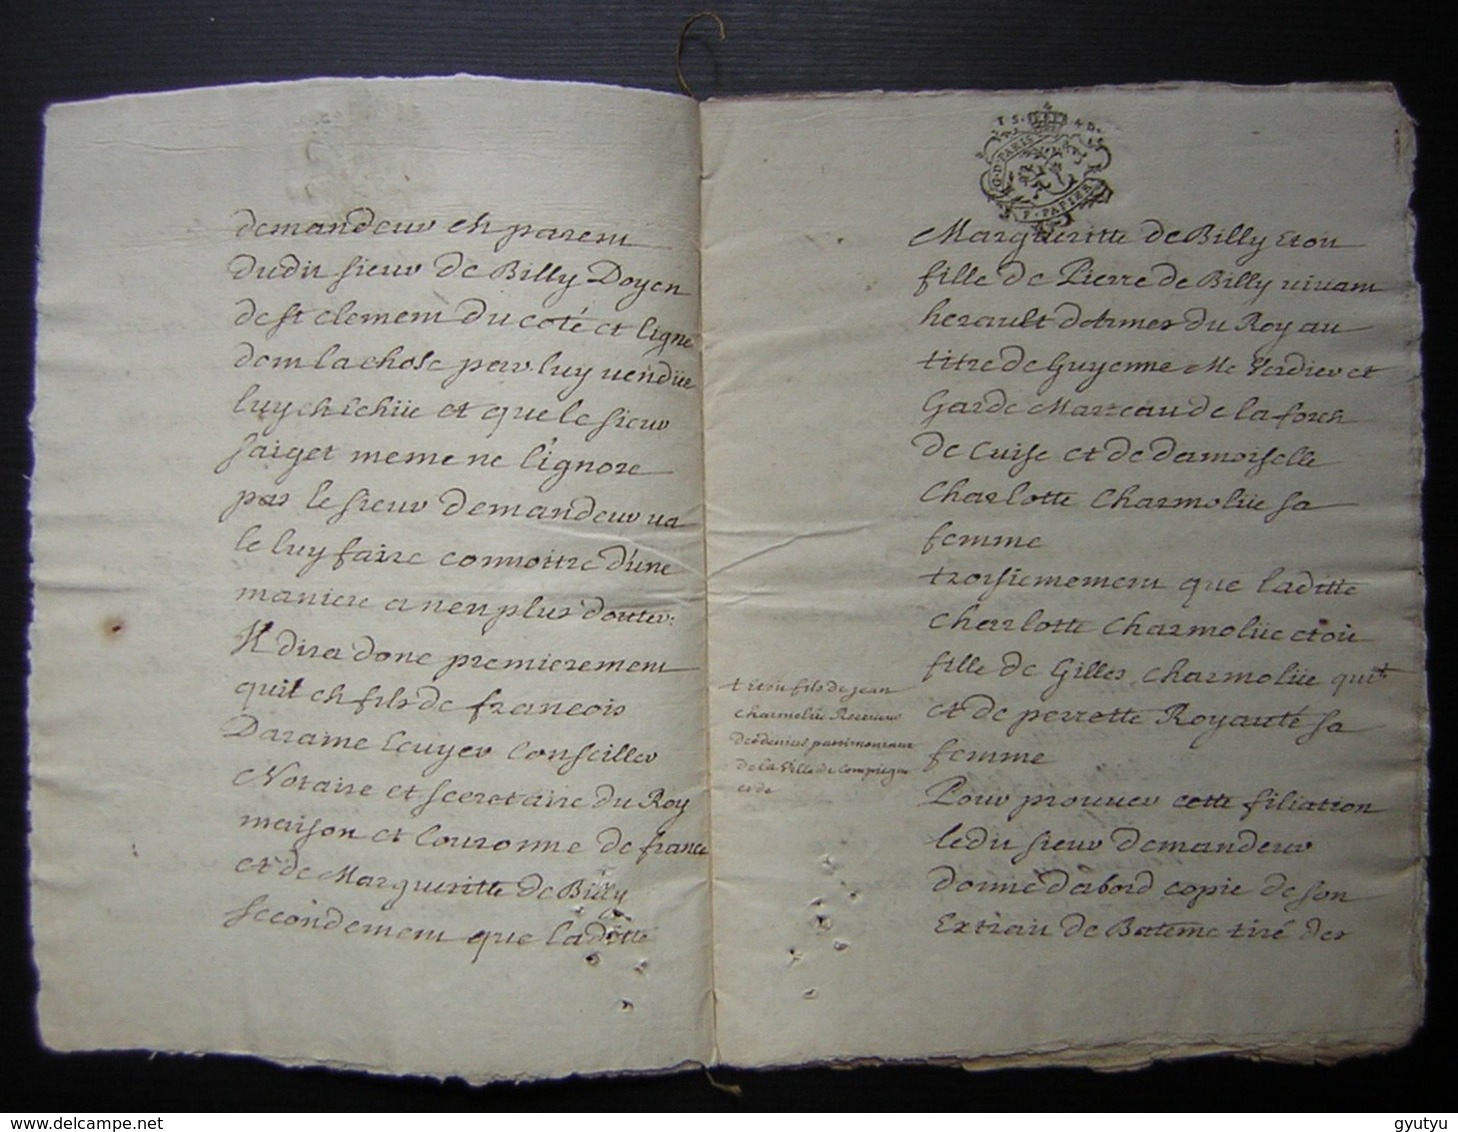 demandeur est parent
dudit sieur de Billy Doyen
de st clement du coté et ligne
dont la chose par luy vendüe
luy est echüe et que le sieur
saiget meme ne l'ignore
pas le sieur demandeur va
le luy faire connoitre d'une
maniere a n'en plus douter:
Il dira donc premierement
quil est fils de francois
Darame Ecuyer Conseiller
Notaire et secretaire du Roy
maison et Couronne de france
et de Margueritte de Billy
secondement que laditte
T S. 4 D.
G. D. PARIS
F. PAPIER
Margueritte de Billy Etoit
fille de Pierre de Billy vivant
herault d'armes du Roy au
titre de Guyenne Me Verdier et
Garde Marteau de la forest
de Cuise et de damoiselle
Charlotte Charmolüe sa
femme
troisiemement que laditte
Charlotte Charmolüe etoit
fille de Gilles Charmolüe qui
et de perrette Royauté sa
femme
Pour prouver cette filiation
ledit sieur demandeur
donne d'abord copie de son
Extrait de Bateme tiré des
etoit fils de Jean
Charmolüe Receveur
des deniers patrimoniaux
de la Ville de Compiegne
et de
gyutyu
delcampe.net